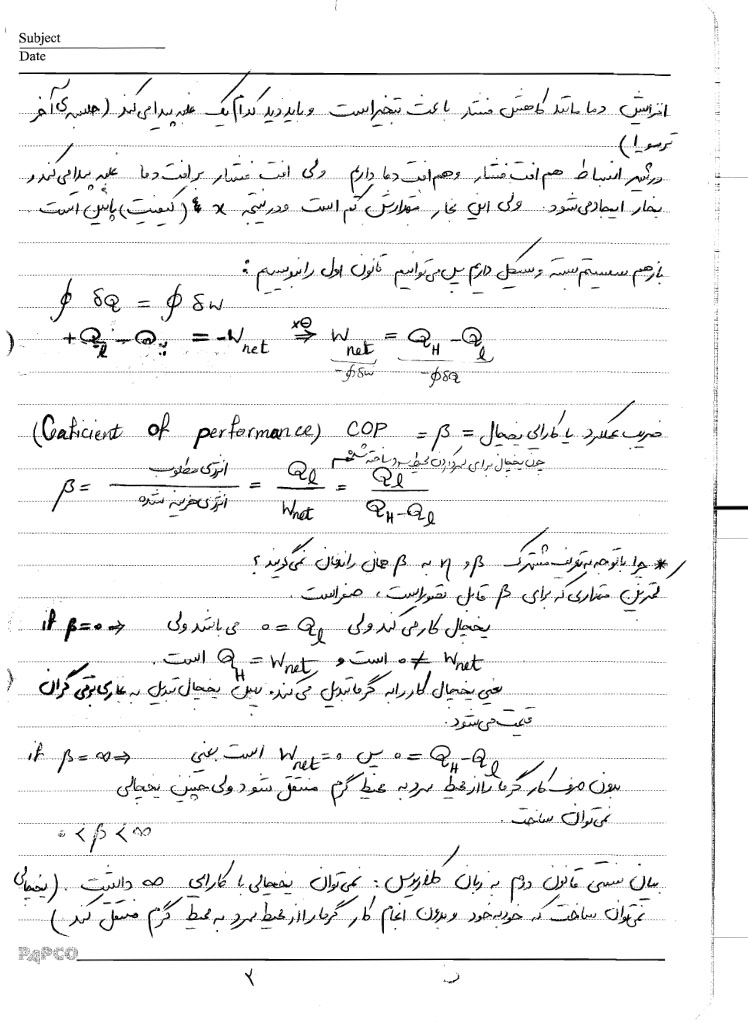 Subject
Date
افزایش دما مانند کاهش فشار باعث تبخیر است و باید دید کدام یک غلبه پیدا می کند (جلسه ی آخر
ترمو ۱)
در شیر انبساط هم افت فشار و هم افت دما داریم ولی افت فشار بر افت دما غلبه پیدا می کند و
بخار ایجاد می شود. ولی این بخار مقدارش کم است و در نتیجه x (کیفیت) پایین است
باز هم سیستم بسته و سیکل داریم پس می توانیم قانون اول را بنویسیم:
∮ δQ = ∮ δw
+Q_l - Q_H = -W_net ⇒ W_net = Q_H - Q_l
-∮δw -∮δQ
ضریب عملکرد یا کارایی یخچال = β = COP (Coeficient of performance)
چون یخچال برای سرد کردن محیط سرد ساخته شده
β = انرژی مطلوب / انرژی هزینه شده = Q_l / W_net = Q_l / Q_H - Q_l
* چرا با توجه به تعریف مشترک β و η به β همان راندمان نمی گویند؟
کمترین مقداری که برای β قابل تصور است، صفر است.
if β=0 ⇒ یخچال کار می کند ولی Q_l = 0 می باشد ولی
W_net ≠ 0 است و Q_H = W_net است.
یعنی یخچال کار را به گرما تبدیل می کند. یخچال تبدیل به بخاری برقی گران
قیمت می شود.
if β=∞ ⇒ Q_H - Q_l = 0 پس W_net = 0 است یعنی
بدون صرف کار گرما را از محیط سرد به محیط گرم منتقل شود ولی چنین یخچالی
نمی توان ساخت.
0 < β < ∞
بیان سنتی قانون دوم به زبان کلازیوس: نمی توان یخچالی با کارایی ∞ داشت. (یخچالی
نمی توان ساخت که خود به خود و بدون انجام کار گرما را از محیط سرد به محیط گرم منتقل کند)
PAPCO
۷